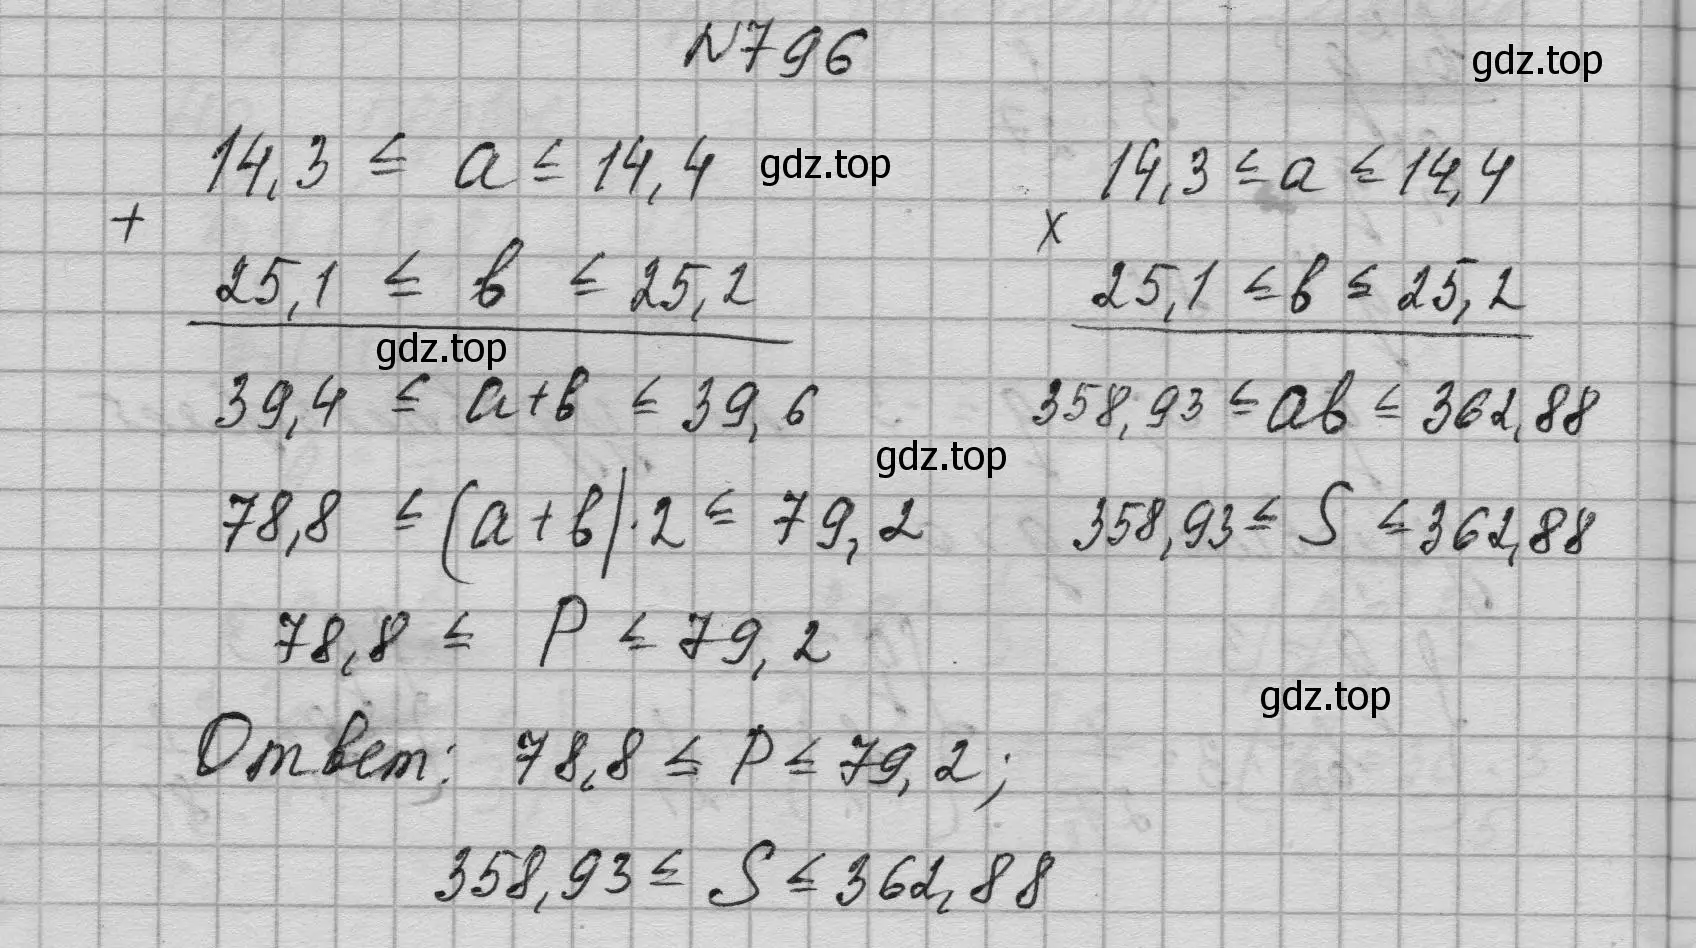 N796
gdz.top
14,3 ≤ a ≤ 14,4
gdz.top
+
25,1 ≤ в ≤ 25,2
gdz.top
39,4 ≤ a+в ≤ 39,6
78,8 ≤ (a+в)·2 ≤ 79,2
78,8 ≤ P ≤ 79,2
14,3 ≤ a ≤ 14,4
x
25,1 ≤ в ≤ 25,2
358,93 ≤ aв ≤ 362,88
gdz.top
358,93 ≤ S ≤ 362,88
gdz.top
Ответ: 78,8 ≤ P ≤ 79,2;
358,93 ≤ S ≤ 362,88